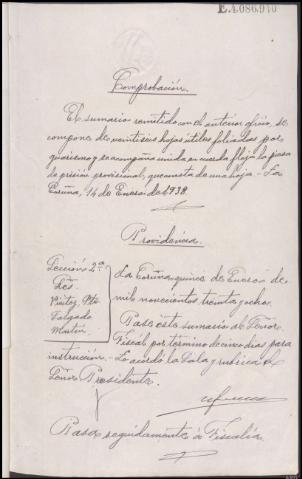 E.4.086.910
Comprobación.
El sumario remitido con el anterior oficio, se
compone de veintiseis hojas útiles foliadas por
y se acompaña unida en cuerda floja la pieza
de prisión provisional, que consta de una hoja.- La
Coruña, 14 de Enero de 1938.
Providencia.
Sección 2ª
Sres.
Pte
Salgado
Martín.
La Coruña quince de Enero de
mil novecientos treinta y ocho.
Pase este sumario al Señor
Fiscal por término de cinco días para
instrucción.- Lo acordó la Sala y rubrica el
Señor Presidente.
Pasa seguidamente a Fiscalía.